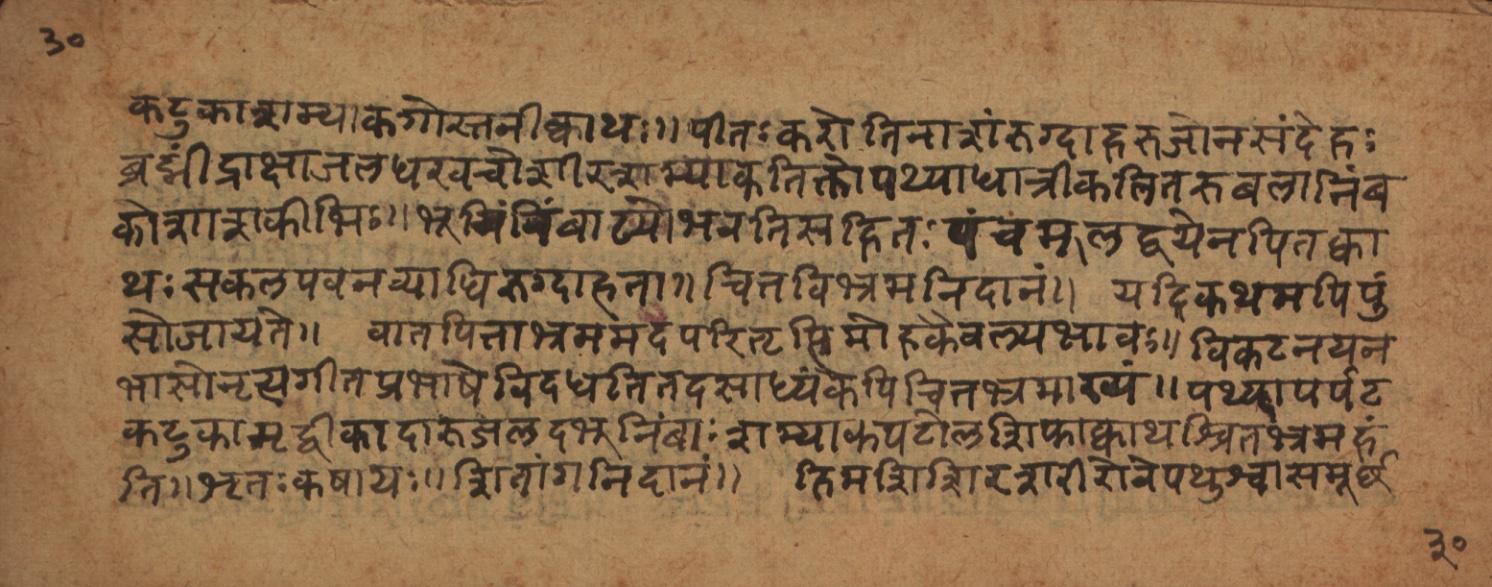 ३०
कटुकाशम्याकगोस्तनीक्वाथः॥ पीतः करोतिनाशंरुग्दाहरुजोनसंदेहः
ब्रह्मींद्राक्षाजलधरवचोशीरशम्याकतिक्तोपथ्याधात्रीकलितरुबलानिंब
कोशाशकीभिः॥ भूमिंनिंबाट्योभवतिसहितः पंचमूलद्वयेनपितक्वा
थः सकलपवनव्याधिरुग्दाहता॥ चित्तविभ्रमनिदानं॥ यदिकथमपिपुं
सोजायते॥ वातपित्ताभ्रममदपरितृप्तिमोहकैवल्यभावः॥ विकटनयन
भासोनृत्यगीतप्रभाषेविदधतितदसाध्यंकेपिचित्तभ्रमाख्यं॥ पथ्यापर्पट
कटुकामृद्वीकादारुजलदभूनिंबाः शम्याकपटोलशिफाक्वाथश्चितभ्रमहं
ति॥ भृतः कषायः॥ शितांगनिदानं॥ हिमशिशिरशरीरोवेपथुश्वासमूर्छ
३०